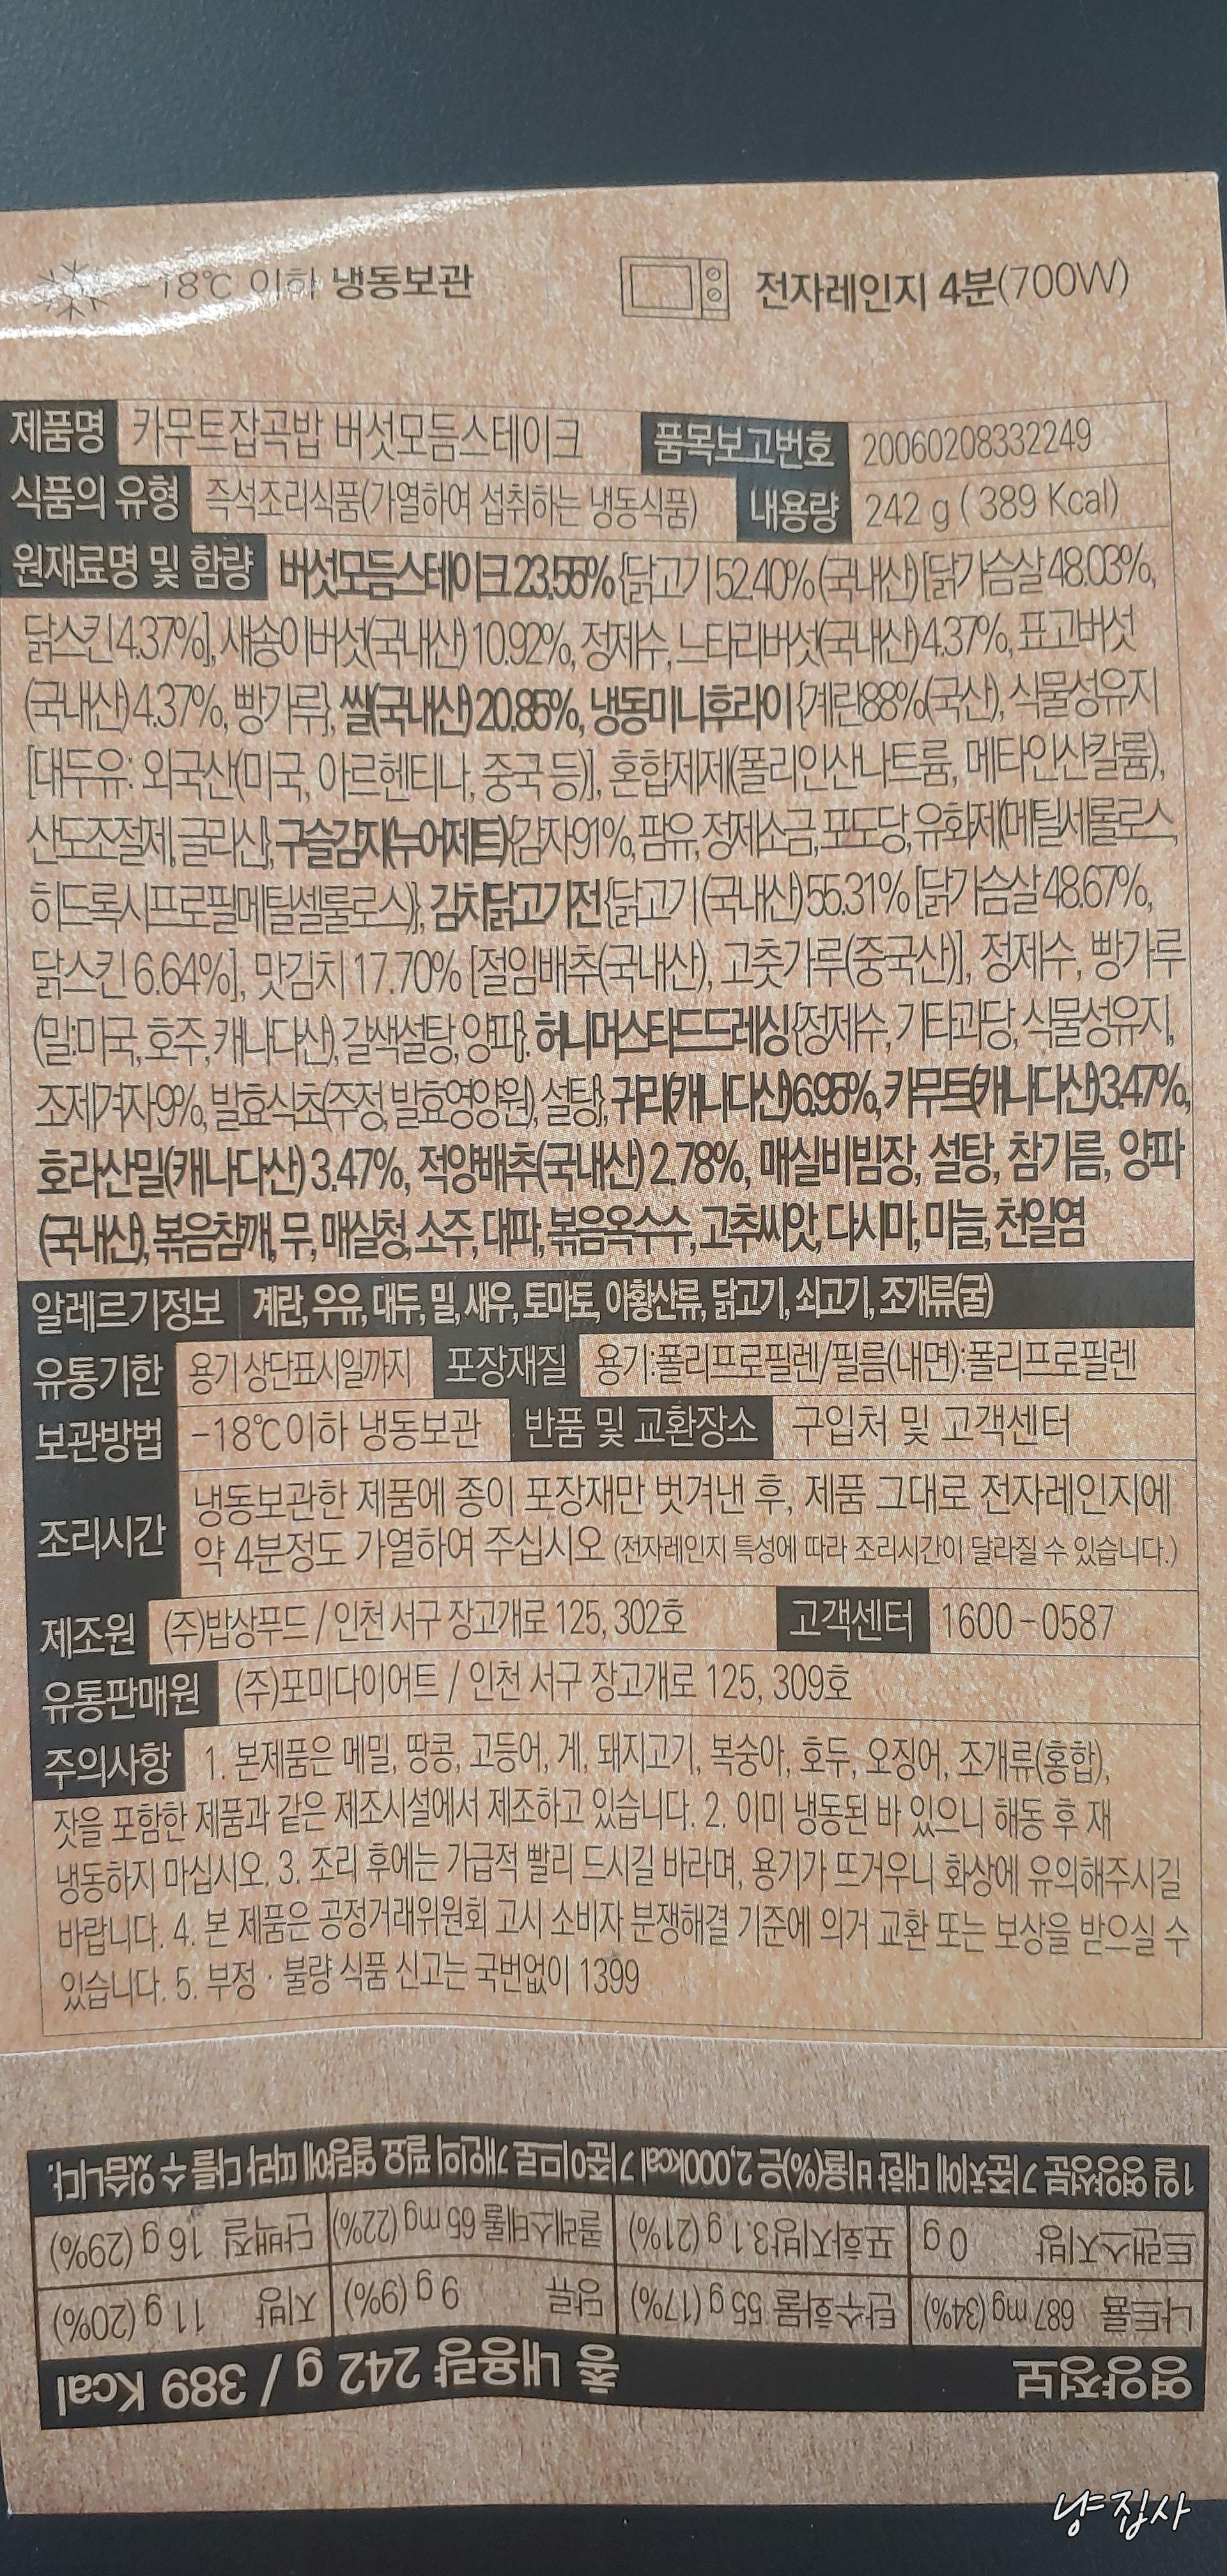 -18℃ 이하 냉동보관 전자레인지 4분(700W)
제품명 카무트잡곡밥 버섯모듬스테이크 품목보고번호 20060208332249
식품의 유형 즉석조리식품(가열하여 섭취하는 냉동식품) 내용량 242 g ( 389 Kcal)
원재료명 및 함량 버섯모듬스테이크 23.55% {닭고기 52.40% (국내산) [닭가슴살 48.03%,
닭스킨 4.37%], 새송이버섯(국내산) 10.92%, 정제수, 느타리버섯(국내산) 4.37%, 표고버섯
(국내산) 4.37%, 빵가루}, 쌀(국내산) 20.85%, 냉동미니후라이 {계란88%(국산), 식물성유지
[대두유: 외국산(미국, 아르헨티나, 중국 등)], 혼합제제(폴리인산나트륨, 메타인산칼륨),
산도조절제, 글리신}, 구슬감자(누어제트) {감자91%, 팜유, 정제소금, 포도당, 유화제(메틸세롤로스,
히드록시프로필메틸셀룰로스)}, 김치닭고기전 {닭고기 (국내산) 55.31% [닭가슴살 48.67%,
닭스킨 6.64%], 맛김치 17.70% [절임배추(국내산), 고춧가루(중국산)], 정제수, 빵가루
(밀:미국, 호주, 캐나다산), 갈색설탕, 양파}, 허니머스타드드레싱 {정제수, 기타과당, 식물성유지,
조제겨자 9%, 발효식초(주정, 발효영양원), 설탕}, 귀리(캐나다산) 6.95%, 카무트(캐나다산) 3.47%,
호라산밀(캐나다산) 3.47%, 적양배추(국내산) 2.78%, 매실비빔장, 설탕, 참기름, 양파
(국내산), 볶음참깨, 무, 매실청, 소주, 대파, 볶음옥수수, 고추씨앗, 다시마, 마늘, 천일염
알레르기정보 계란, 우유, 대두, 밀, 새우, 토마토, 아황산류, 닭고기, 쇠고기, 조개류(굴)
유통기한 용기 상단표시일까지 포장재질 용기:폴리프로필렌/필름(내면):폴리프로필렌
보관방법 -18℃이하 냉동보관 반품 및 교환장소 구입처 및 고객센터
조리시간 냉동보관한 제품에 종이 포장재만 벗겨낸 후, 제품 그대로 전자레인지에
약 4분정도 가열하여 주십시오 (전자레인지 특성에 따라 조리시간이 달라질 수 있습니다.)
제조원 (주)밥상푸드 / 인천 서구 장고개로 125, 302호 고객센터 1600-0587
유통판매원 (주)포미다이어트 / 인천 서구 장고개로 125, 309호
주의사항 1. 본제품은 메밀, 땅콩, 고등어, 게, 돼지고기, 복숭아, 호두, 오징어, 조개류(홍합),
잣을 포함한 제품과 같은 제조시설에서 제조하고 있습니다. 2. 이미 냉동된 바 있으니 해동 후 재
냉동하지 마십시오. 3. 조리 후에는 가급적 빨리 드시길 바라며, 용기가 뜨거우니 화상에 유의해주시길
바랍니다. 4. 본 제품은 공정거래위원회 고시 소비자 분쟁해결 기준에 의거 교환 또는 보상을 받으실 수
있습니다. 5. 부정 · 불량 식품 신고는 국번없이 1399
영양정보 총 내용량 242 g / 389 Kcal
나트륨 687 mg (34%) 탄수화물 55 g (17%) 당류 9 g (9%) 지방 11 g (20%)
트랜스지방 0 g 포화지방 3.1 g (21%) 콜레스테롤 65 mg (22%) 단백질 16 g (29%)
1일 영양성분 기준치에 대한 비율(%)은 2,000kcal 기준이므로 개인의 필요 열량에 따라 다를 수 있습니다.
냥집사